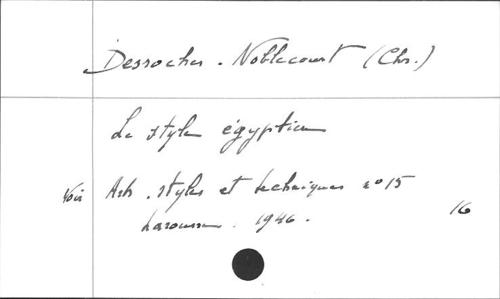 Desroches-Noblecourt (Chr.)
Le style égyptien
Voir Arts, styles et techniques n° 15
Larousse. 1946.
16